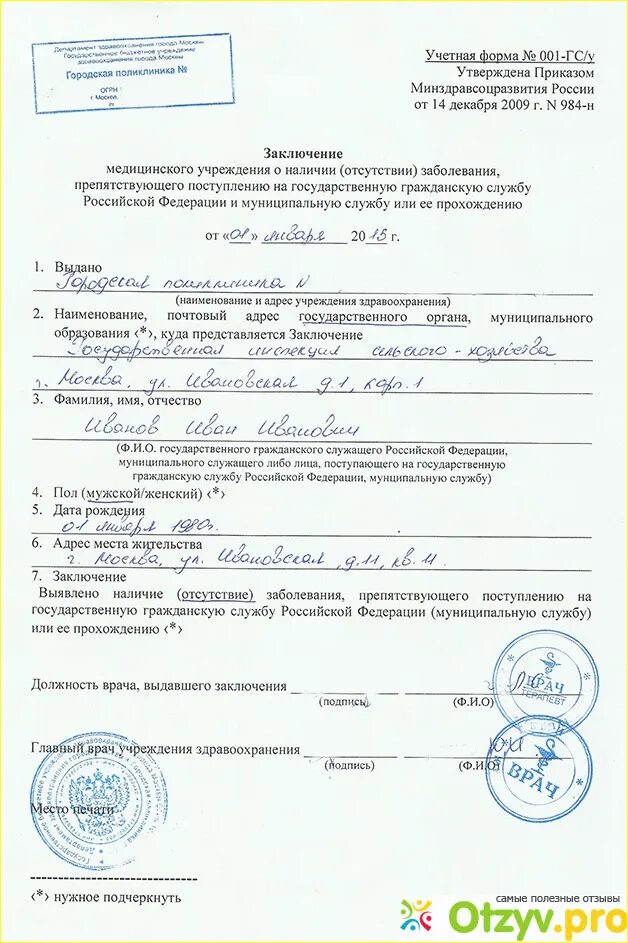 Департамент здравоохранения города Москвы
Государственное бюджетное учреждение
здравоохранения города Москвы
Городская поликлиника №
ОГРН
г. Москва,
Учетная форма № 001-ГС/у
Утверждена Приказом
Минздравсоцразвития России
от 14 декабря 2009 г. N 984-н
Заключение
медицинского учреждения о наличии (отсутствии) заболевания,
препятствующего поступлению на государственную гражданскую службу
Российской Федерации и муниципальную службу или ее прохождению
от «01» января 2015 г.
1. Выдано
Городская поликлиника N
(наименование и адрес учреждения здравоохранения)
2. Наименование, почтовый адрес государственного органа, муниципального
образования <*>, куда представляется Заключение
Государственная инспекция сельского-хозяйства
г. Москва, ул. Ивановская д.1, корп.1
3. Фамилия, имя, отчество
Иванов Иван Иванович
(Ф.И.О. государственного гражданского служащего Российской Федерации,
муниципального служащего либо лица, поступающего на государственную
гражданскую службу Российской Федерации, мунципальную службу)
4. Пол (мужской/женский) <*>
5. Дата рождения
01 января 1980г.
6. Адрес места жительства
г. Москва, ул. Ивановская, д.11, кв. 11.
7. Заключение
Выявлено наличие (отсутствие) заболевания, препятствующего поступлению на
государственную гражданскую службу Российской Федерации (муниципальную службу)
или ее прохождению <*>
Должность врача, выдавшего заключения
(подпись) (Ф.И.О)
ВРАЧ
ТЕРАПЕВТ
Главный врач учреждения здравоохранения
(подпись) (Ф.И.О)
ВРАЧ
Место печати
<*> нужное подчеркнуть
самые полезные отзывы
Otzyv.pro